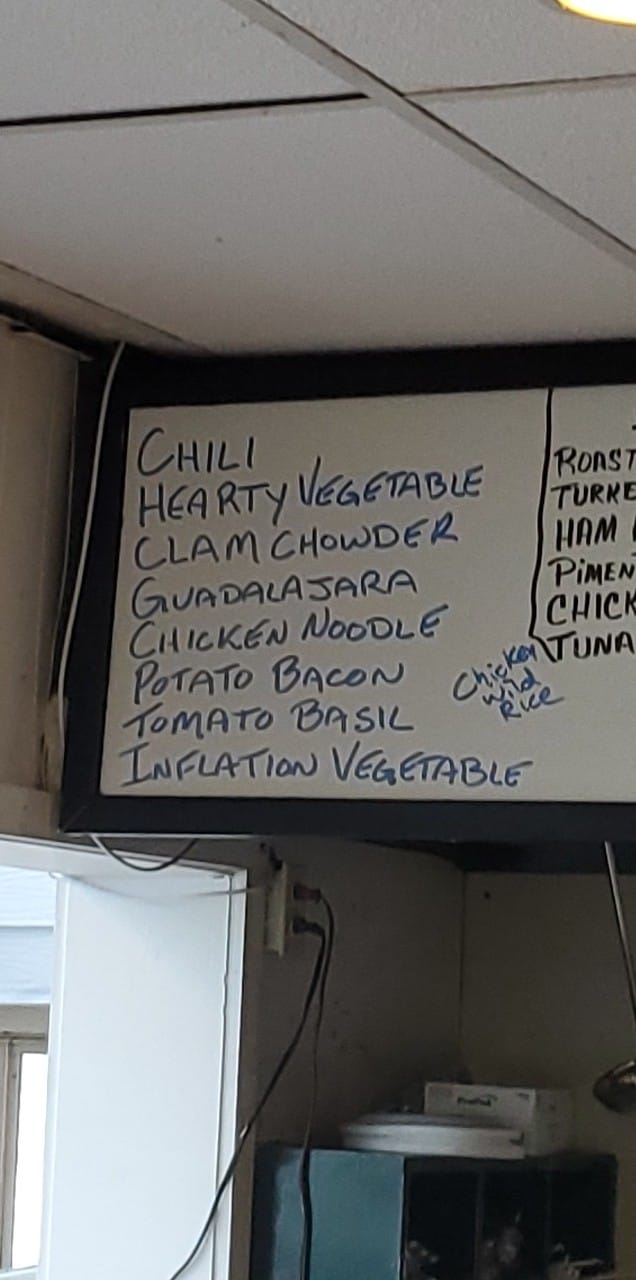 CHILI
HEARTY VEGETABLE
CLAM CHOWDER
GUADALAJARA
CHICKEN NOODLE
POTATO BACON
TOMATO BASIL
INFLATION VEGETABLE
Chicken
Wild
Rice
ROAST
TURKE
HAM
PIMEN
CHICK
TUNA